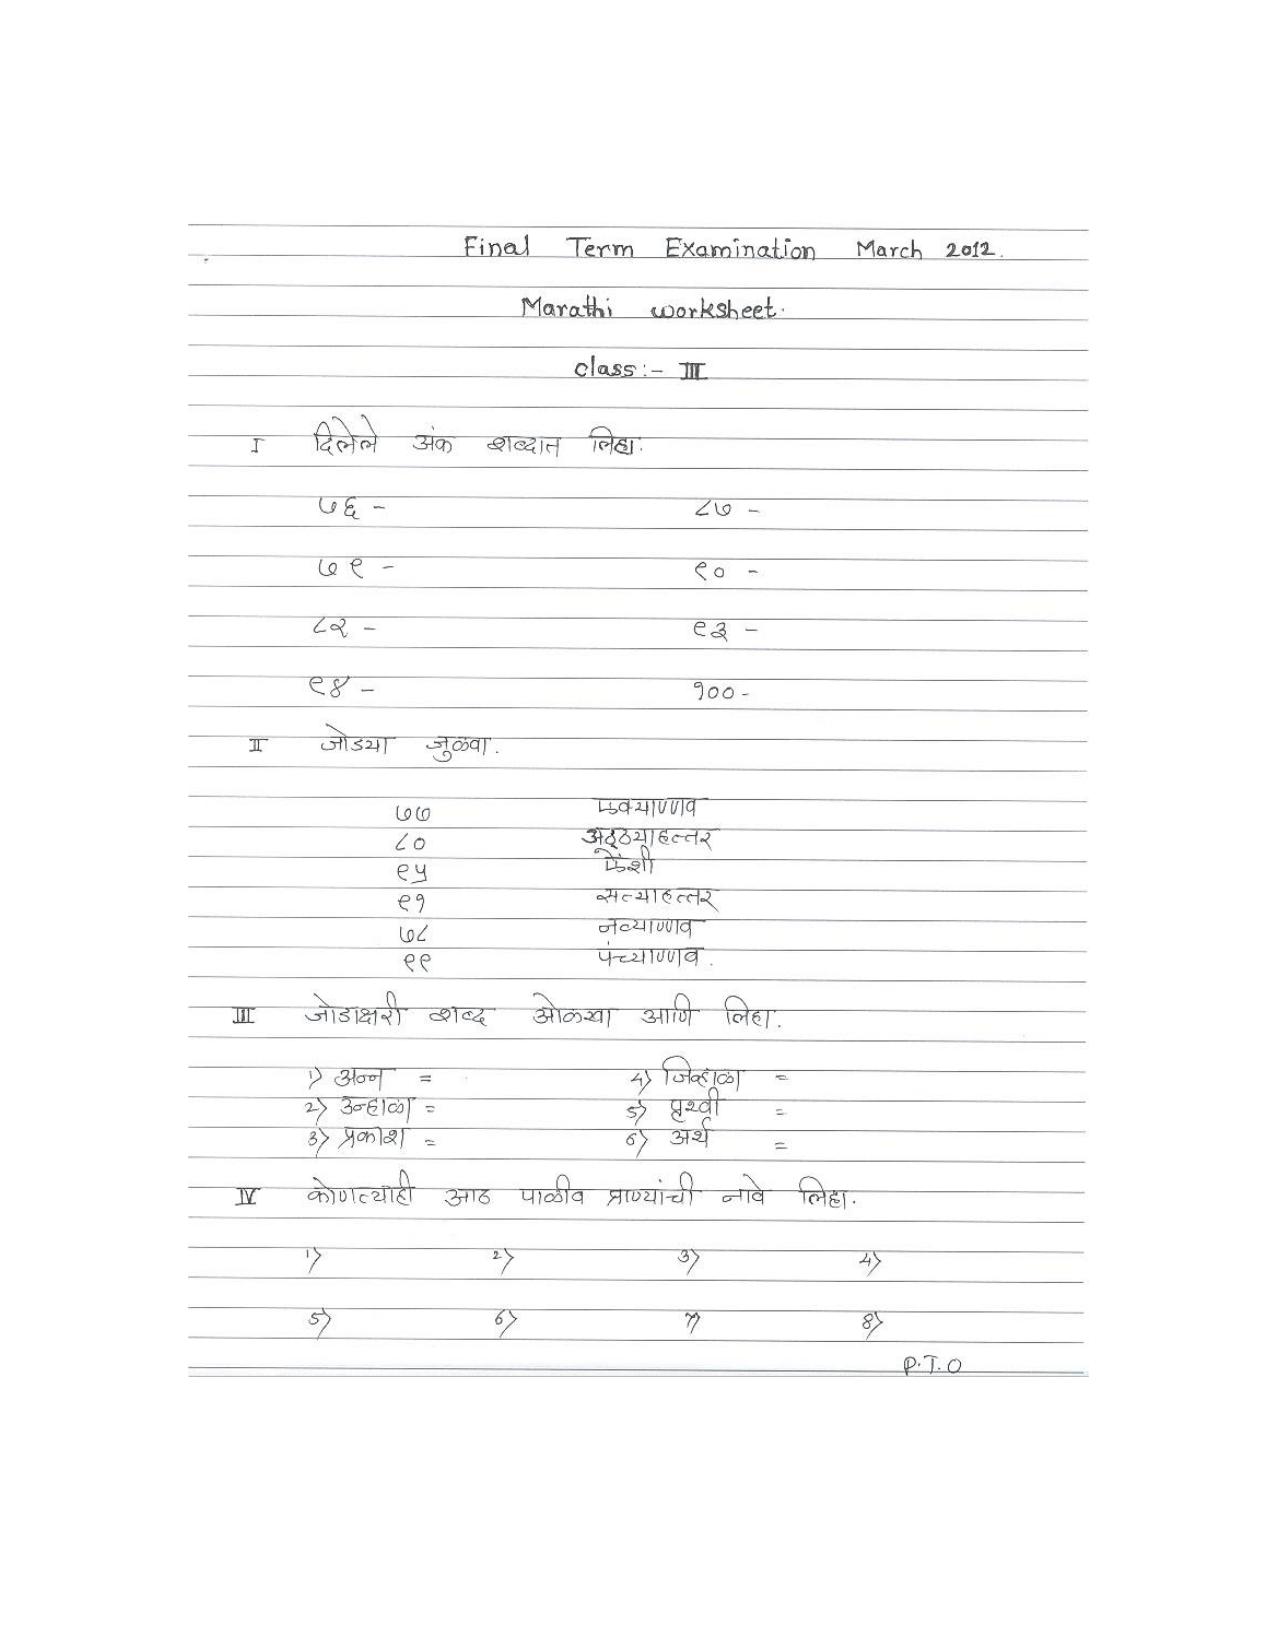 Final Term Examination March 2012.
Marathi worksheet.
class:- III
I दिलेले अंक शब्दात लिहा.
७६ - ८७ -
७९ - ९० -
८२ - ९३ -
९४ - १०० -
II जोडया जुळवा.
७७ एक्याण्णव
८० अठ्ठयाहत्तर
९५ ऐंशी
९१ सत्याहत्तर
७८ नव्याण्णव
९९ पंच्याण्णव.
III जोडाक्षरी शब्द ओळखा आणि लिहा.
1) अन्न = 4) जिव्हाळा =
2) उन्हाळा = 5) पृथ्वी =
3) प्रकाश = 6) अर्थ =
IV कोणत्याही आठ पाळीव प्राण्यांची नावे लिहा.
1) 2) 3) 4)
5) 6) 7) 8)
P.T.O